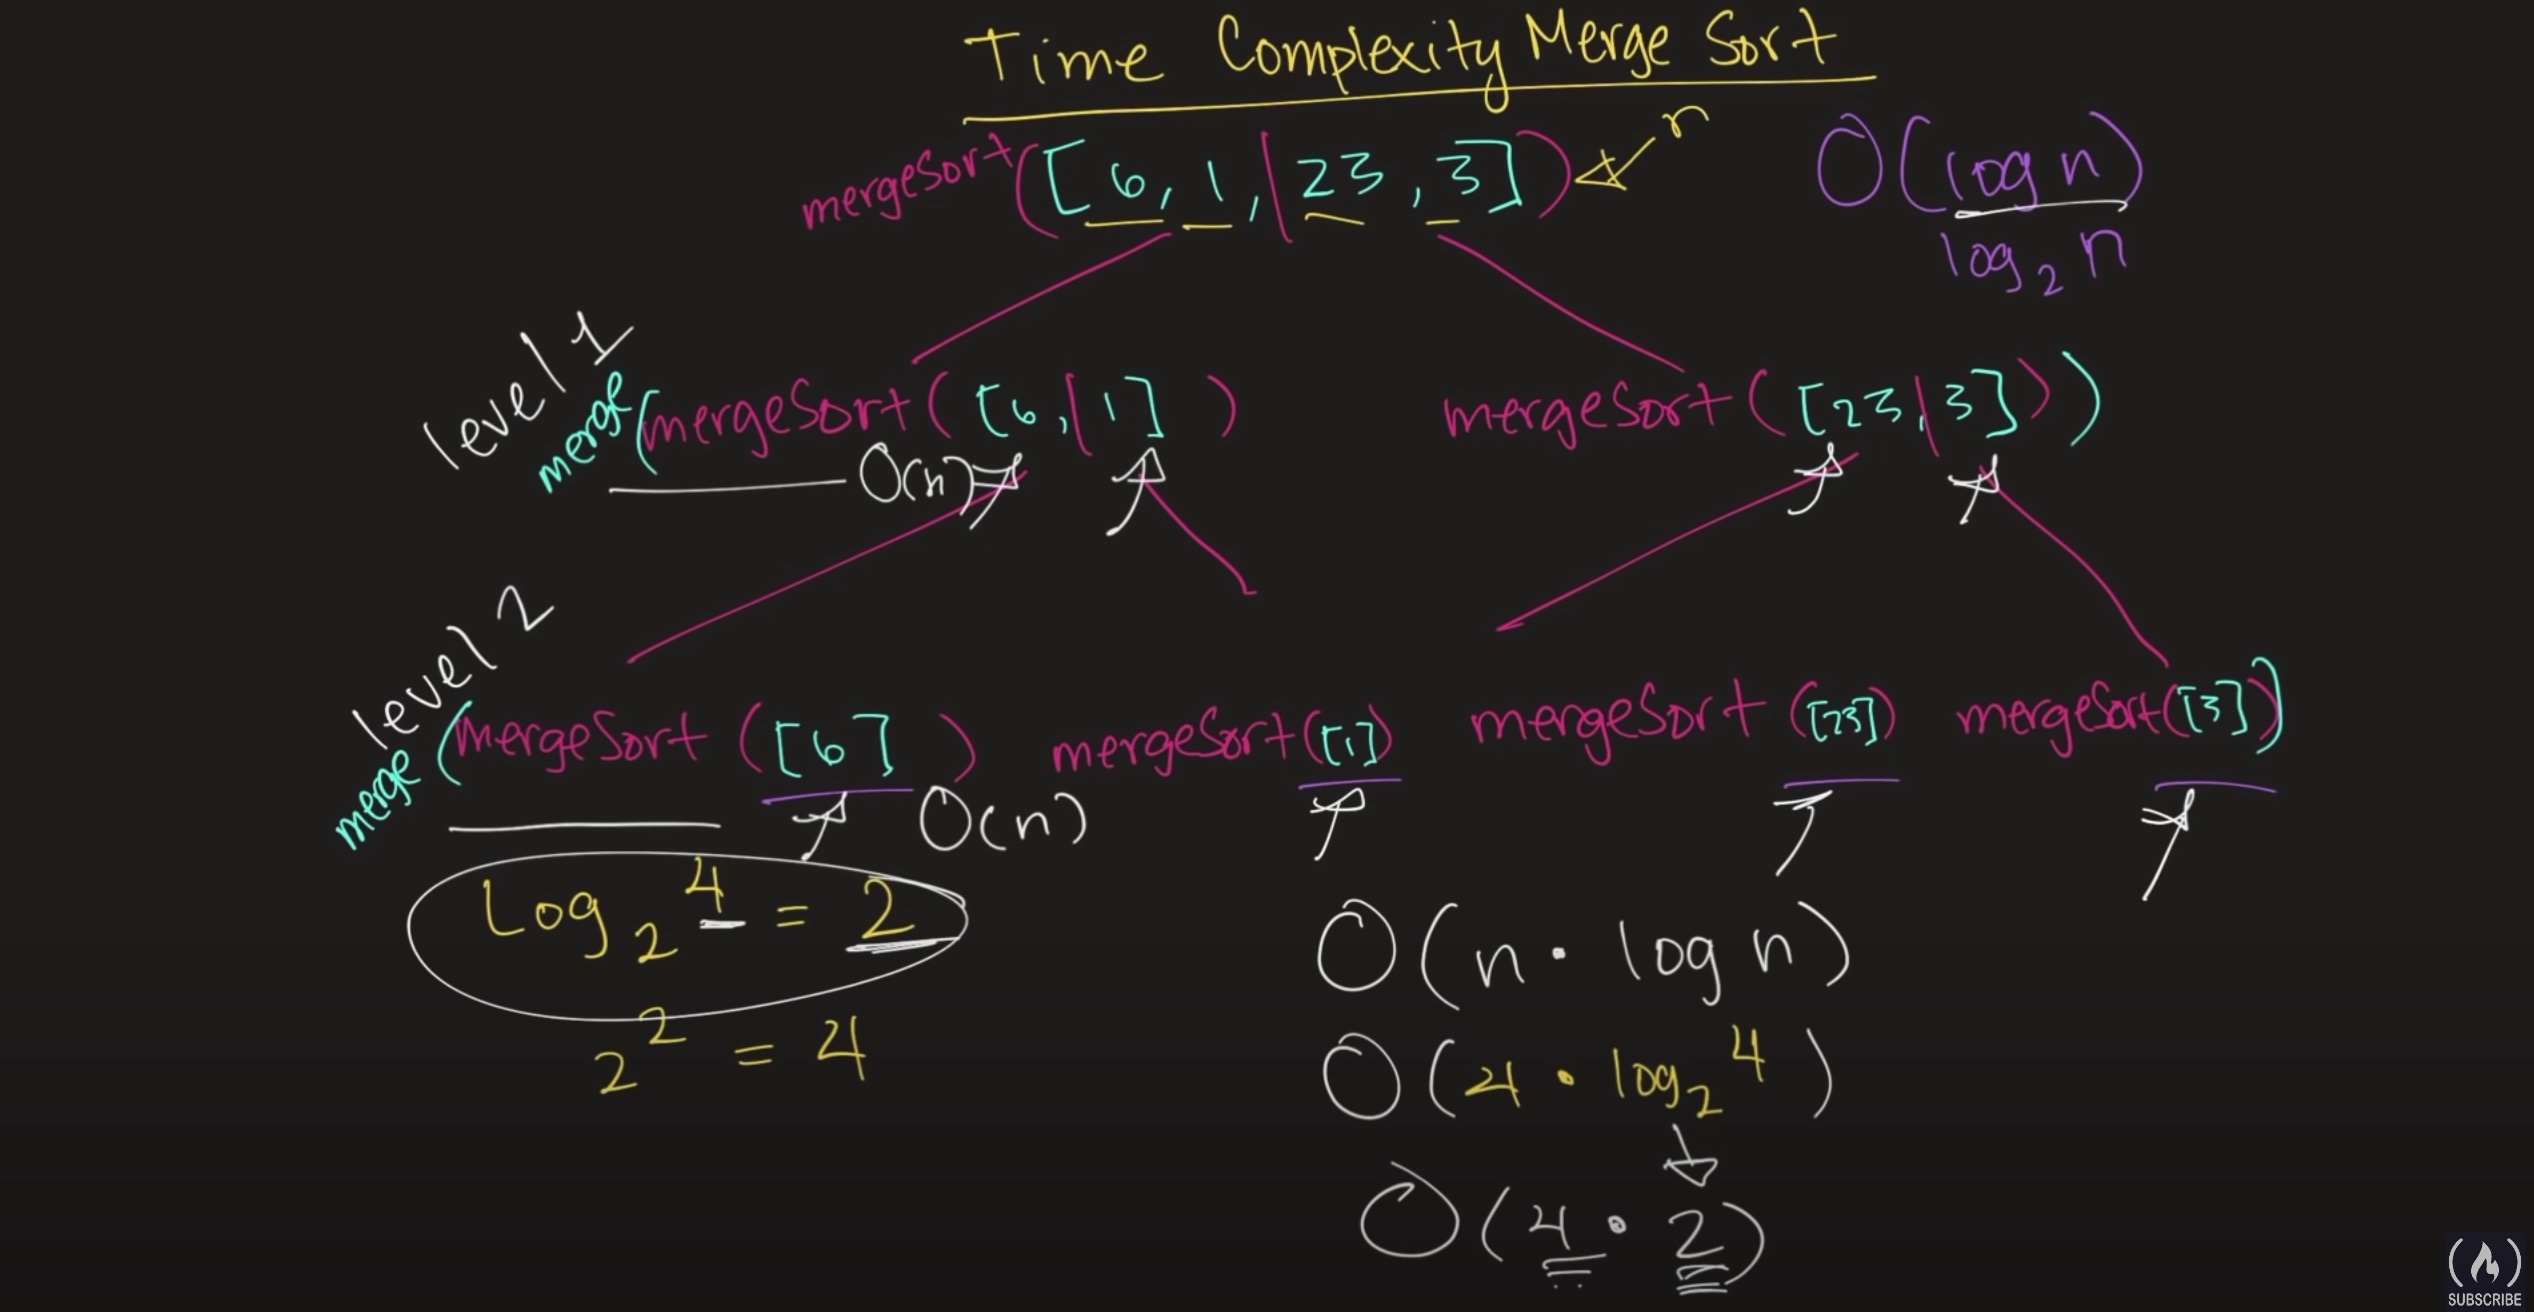 Time Complexity Merge Sort
mergeSort([6, 1, | 23, 3]) n
O(log n)
log₂ n
level 1
merge(mergeSort([6, | 1]) mergeSort([23, | 3]))
O(n)
level 2
merge(mergeSort([6]) mergeSort([1]) mergeSort([23]) mergeSort([3]))
O(n)
Log₂ 4 = 2
2² = 4
O(n · log n)
O(4 · log₂ 4)
O(4 · 2)
SUBSCRIBE